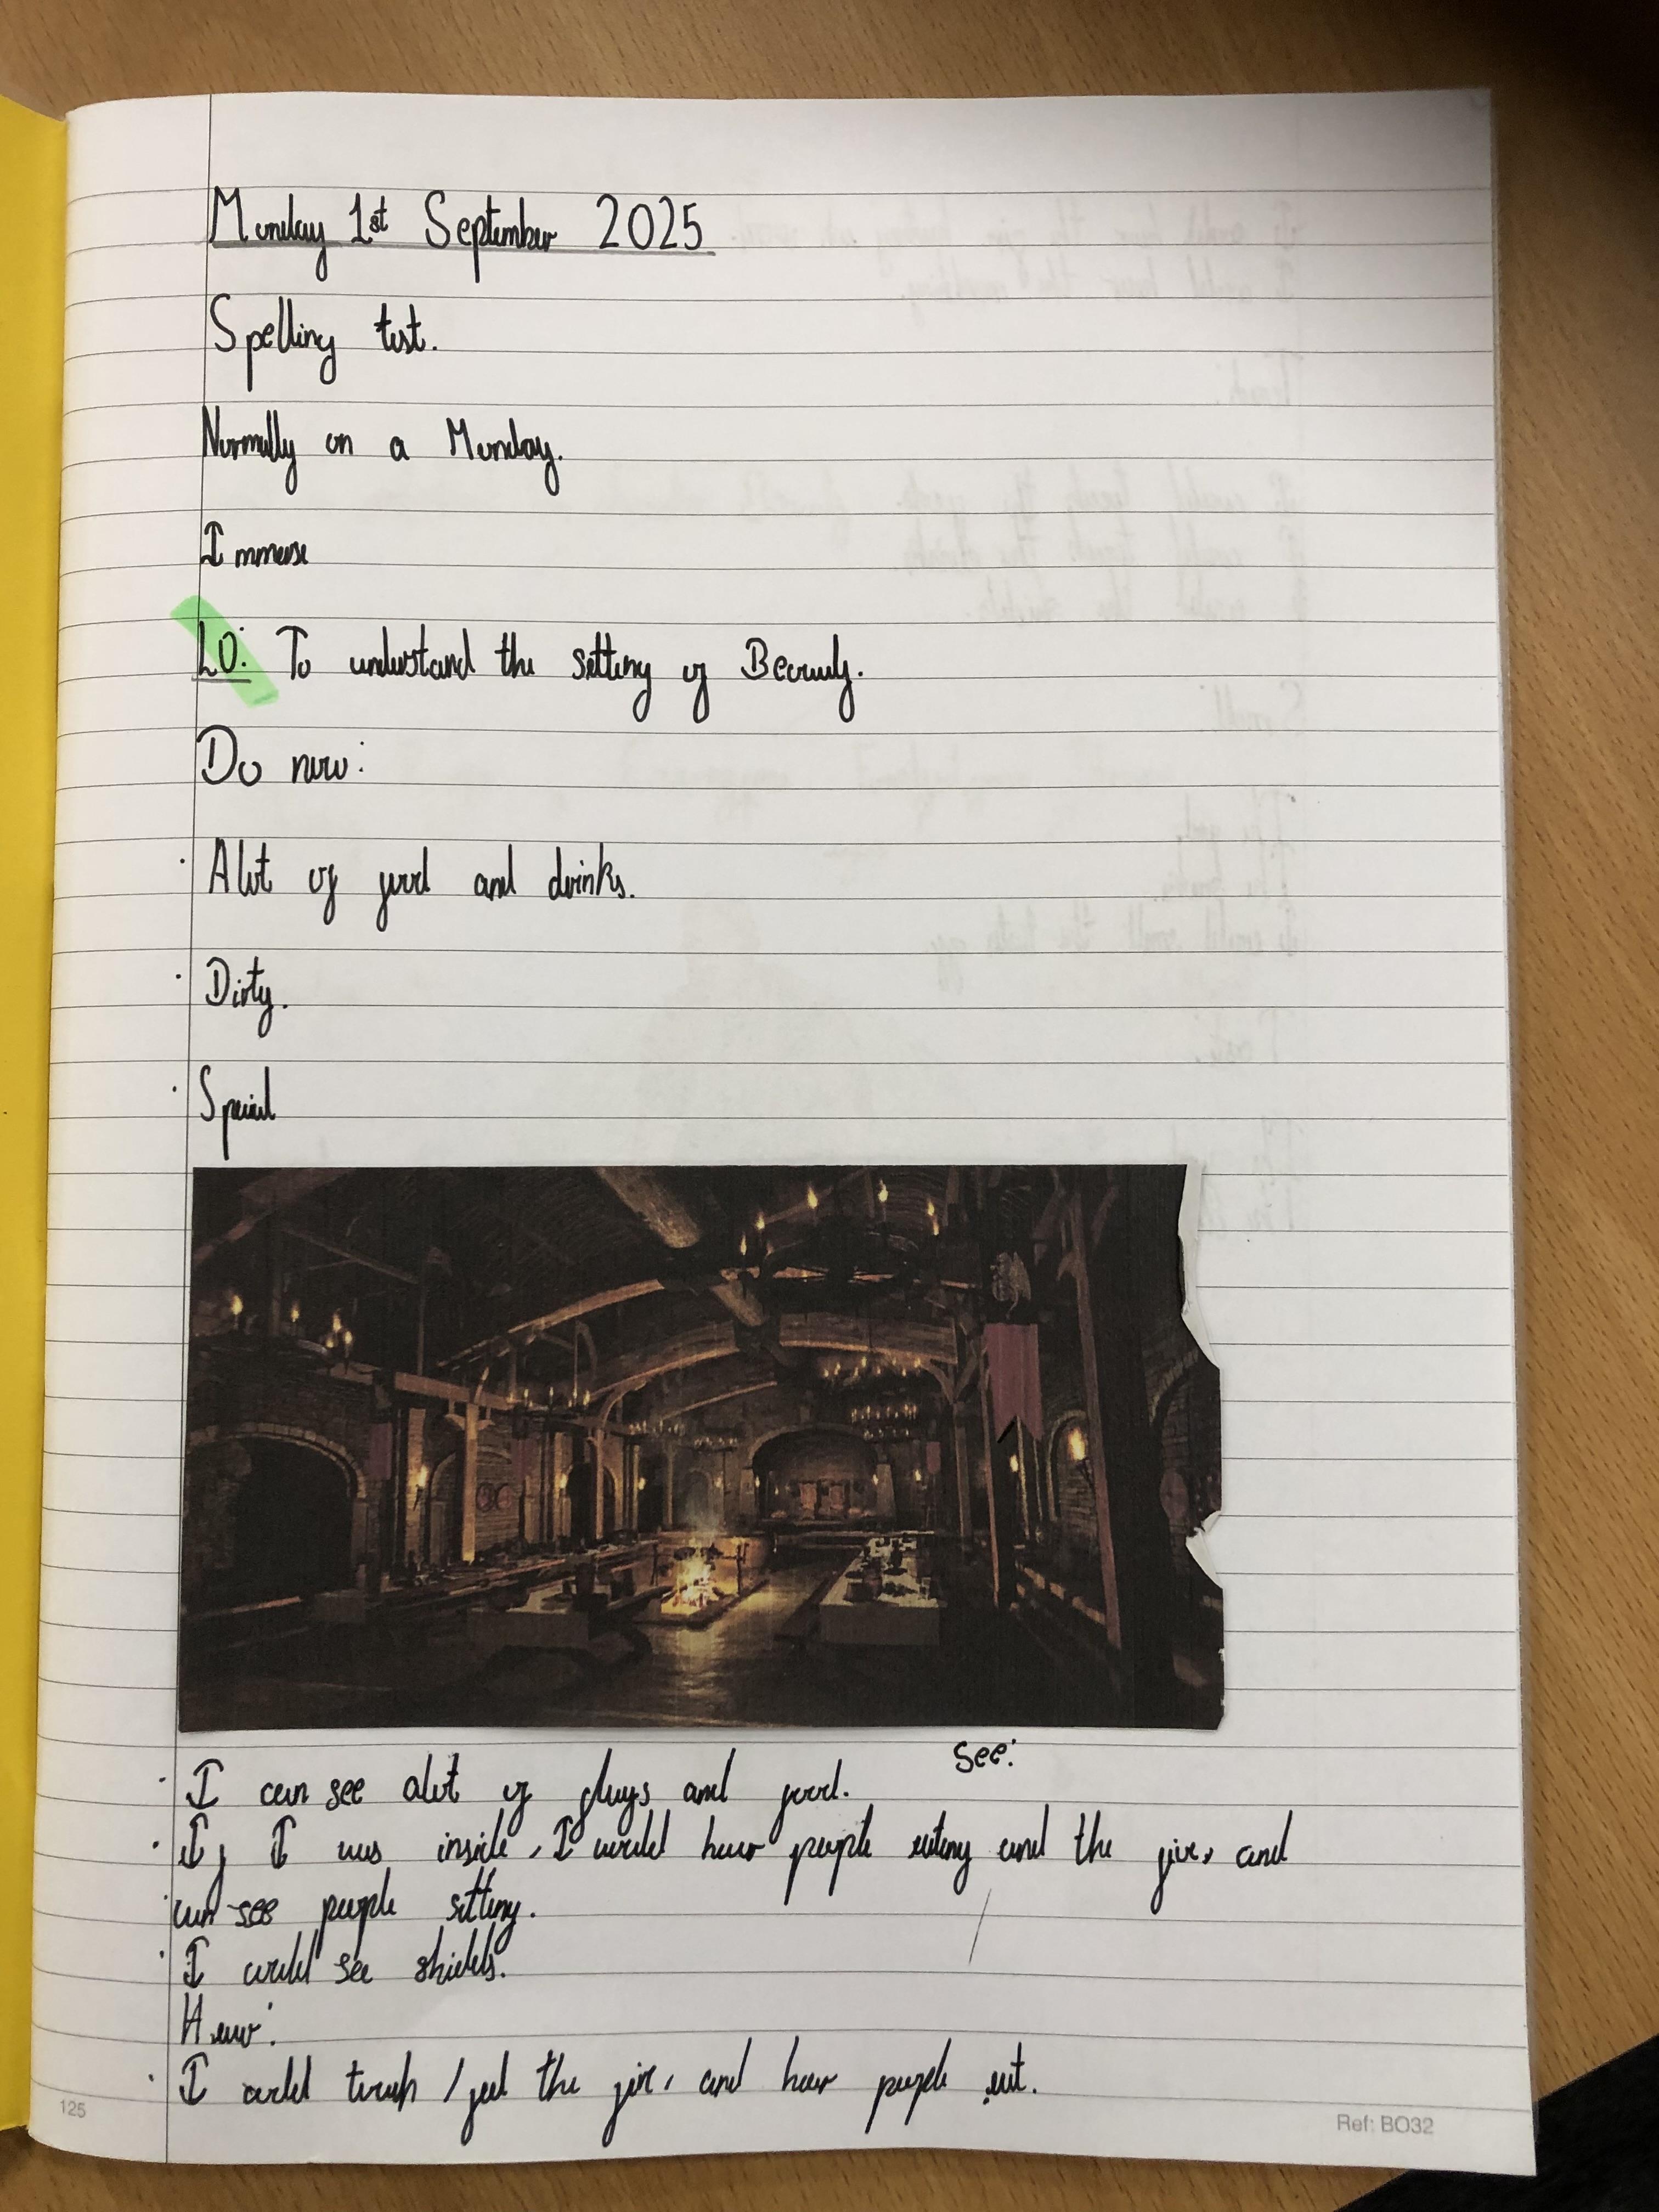 Monday 1st September 2025
Spelling test.
Normally on a Monday.
Immerse
LO: To understand the setting of Beowulf.
Do now:
· Alot of food and drinks.
· Dirty.
· Special
See:
· I can see alot of and food.
· If I was inside, I would hear people eating and the fire, and
· can see people sitting.
· I could see shields.
Hear:
· I could touch / feel the fire, and hear people eat.
125
Ref: BO32